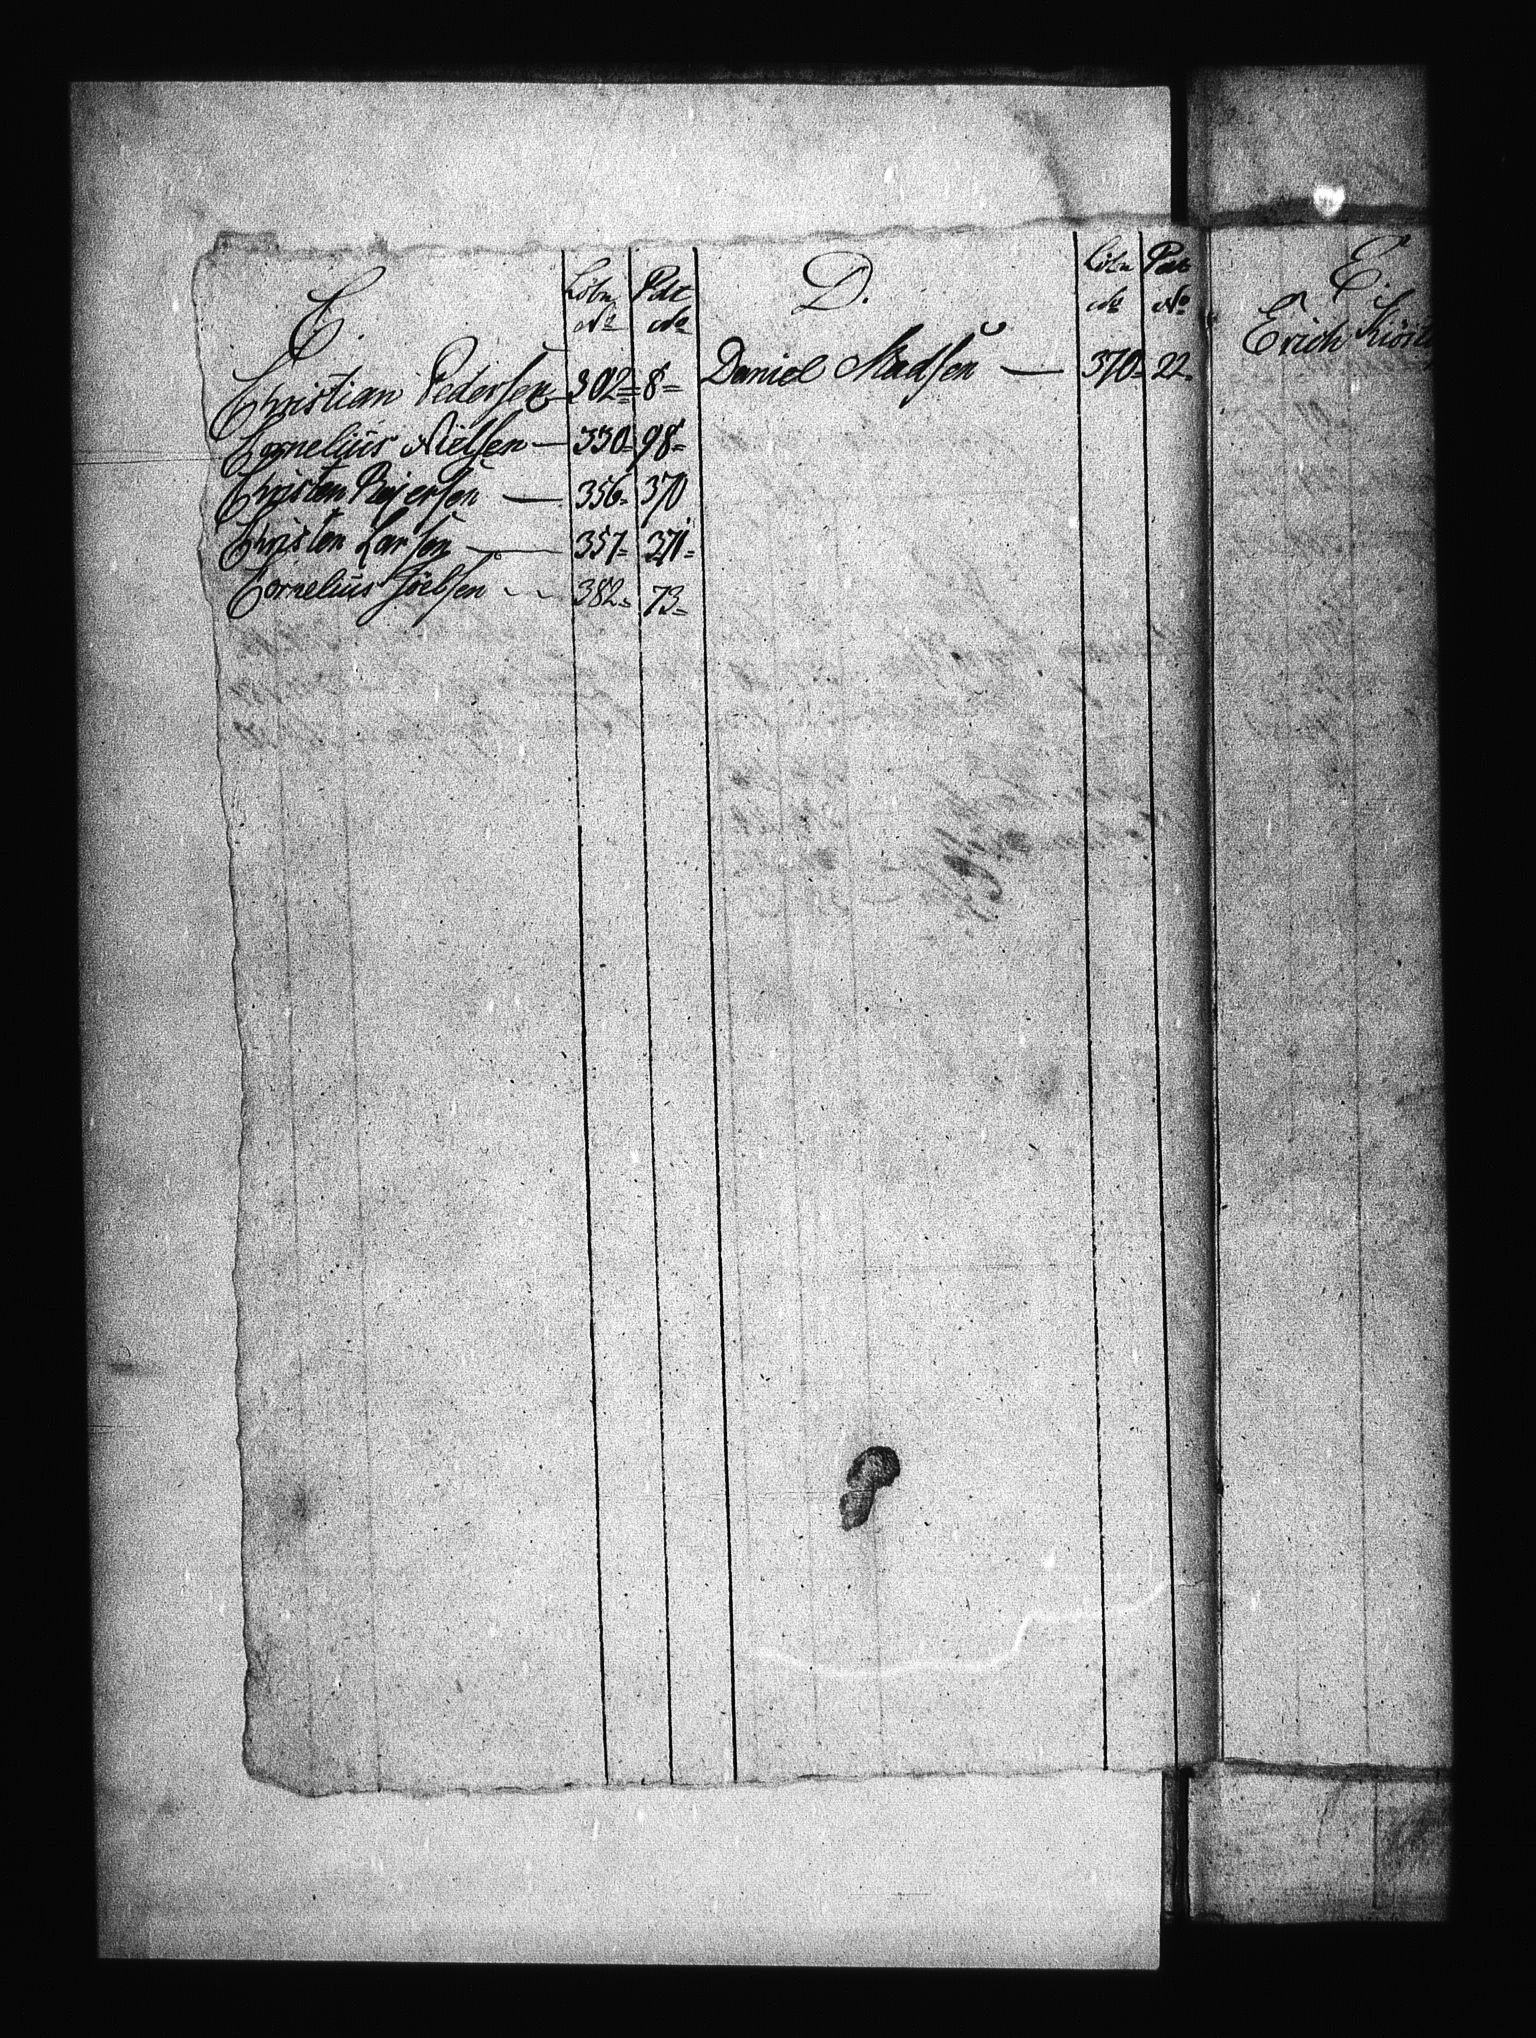 C.
Löbe No
Pdt No
Christian Pedersen 302 = 8 =
Cornelius Nielsen — 330 = 98 =
Christen Bejersen — 356 - 370
Christen Larsen — 357 = 371 =
Cornelius Joelsen - - 382 = 73 =
D.
Löbe No
Pdt No
Daniel Madsen — 370 = 22 -
E.
Erich